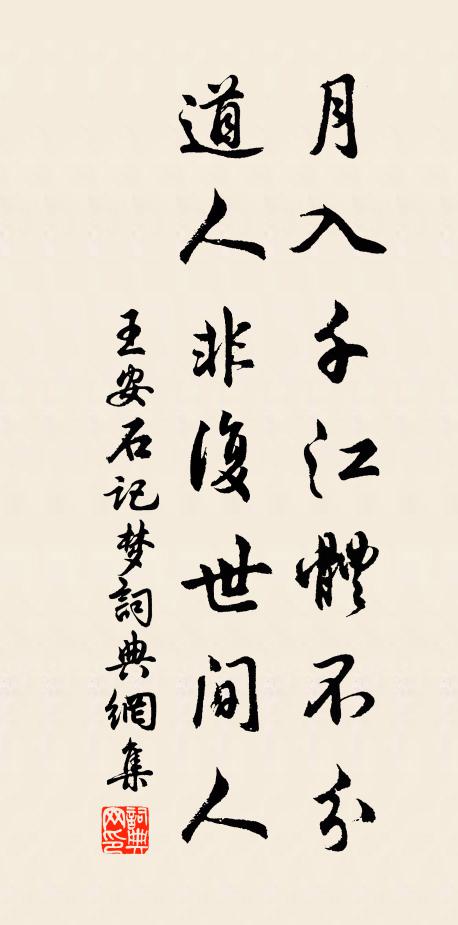 月入千江體不分
道人非復世間人
王安石記梦詞典網集
詞典网印